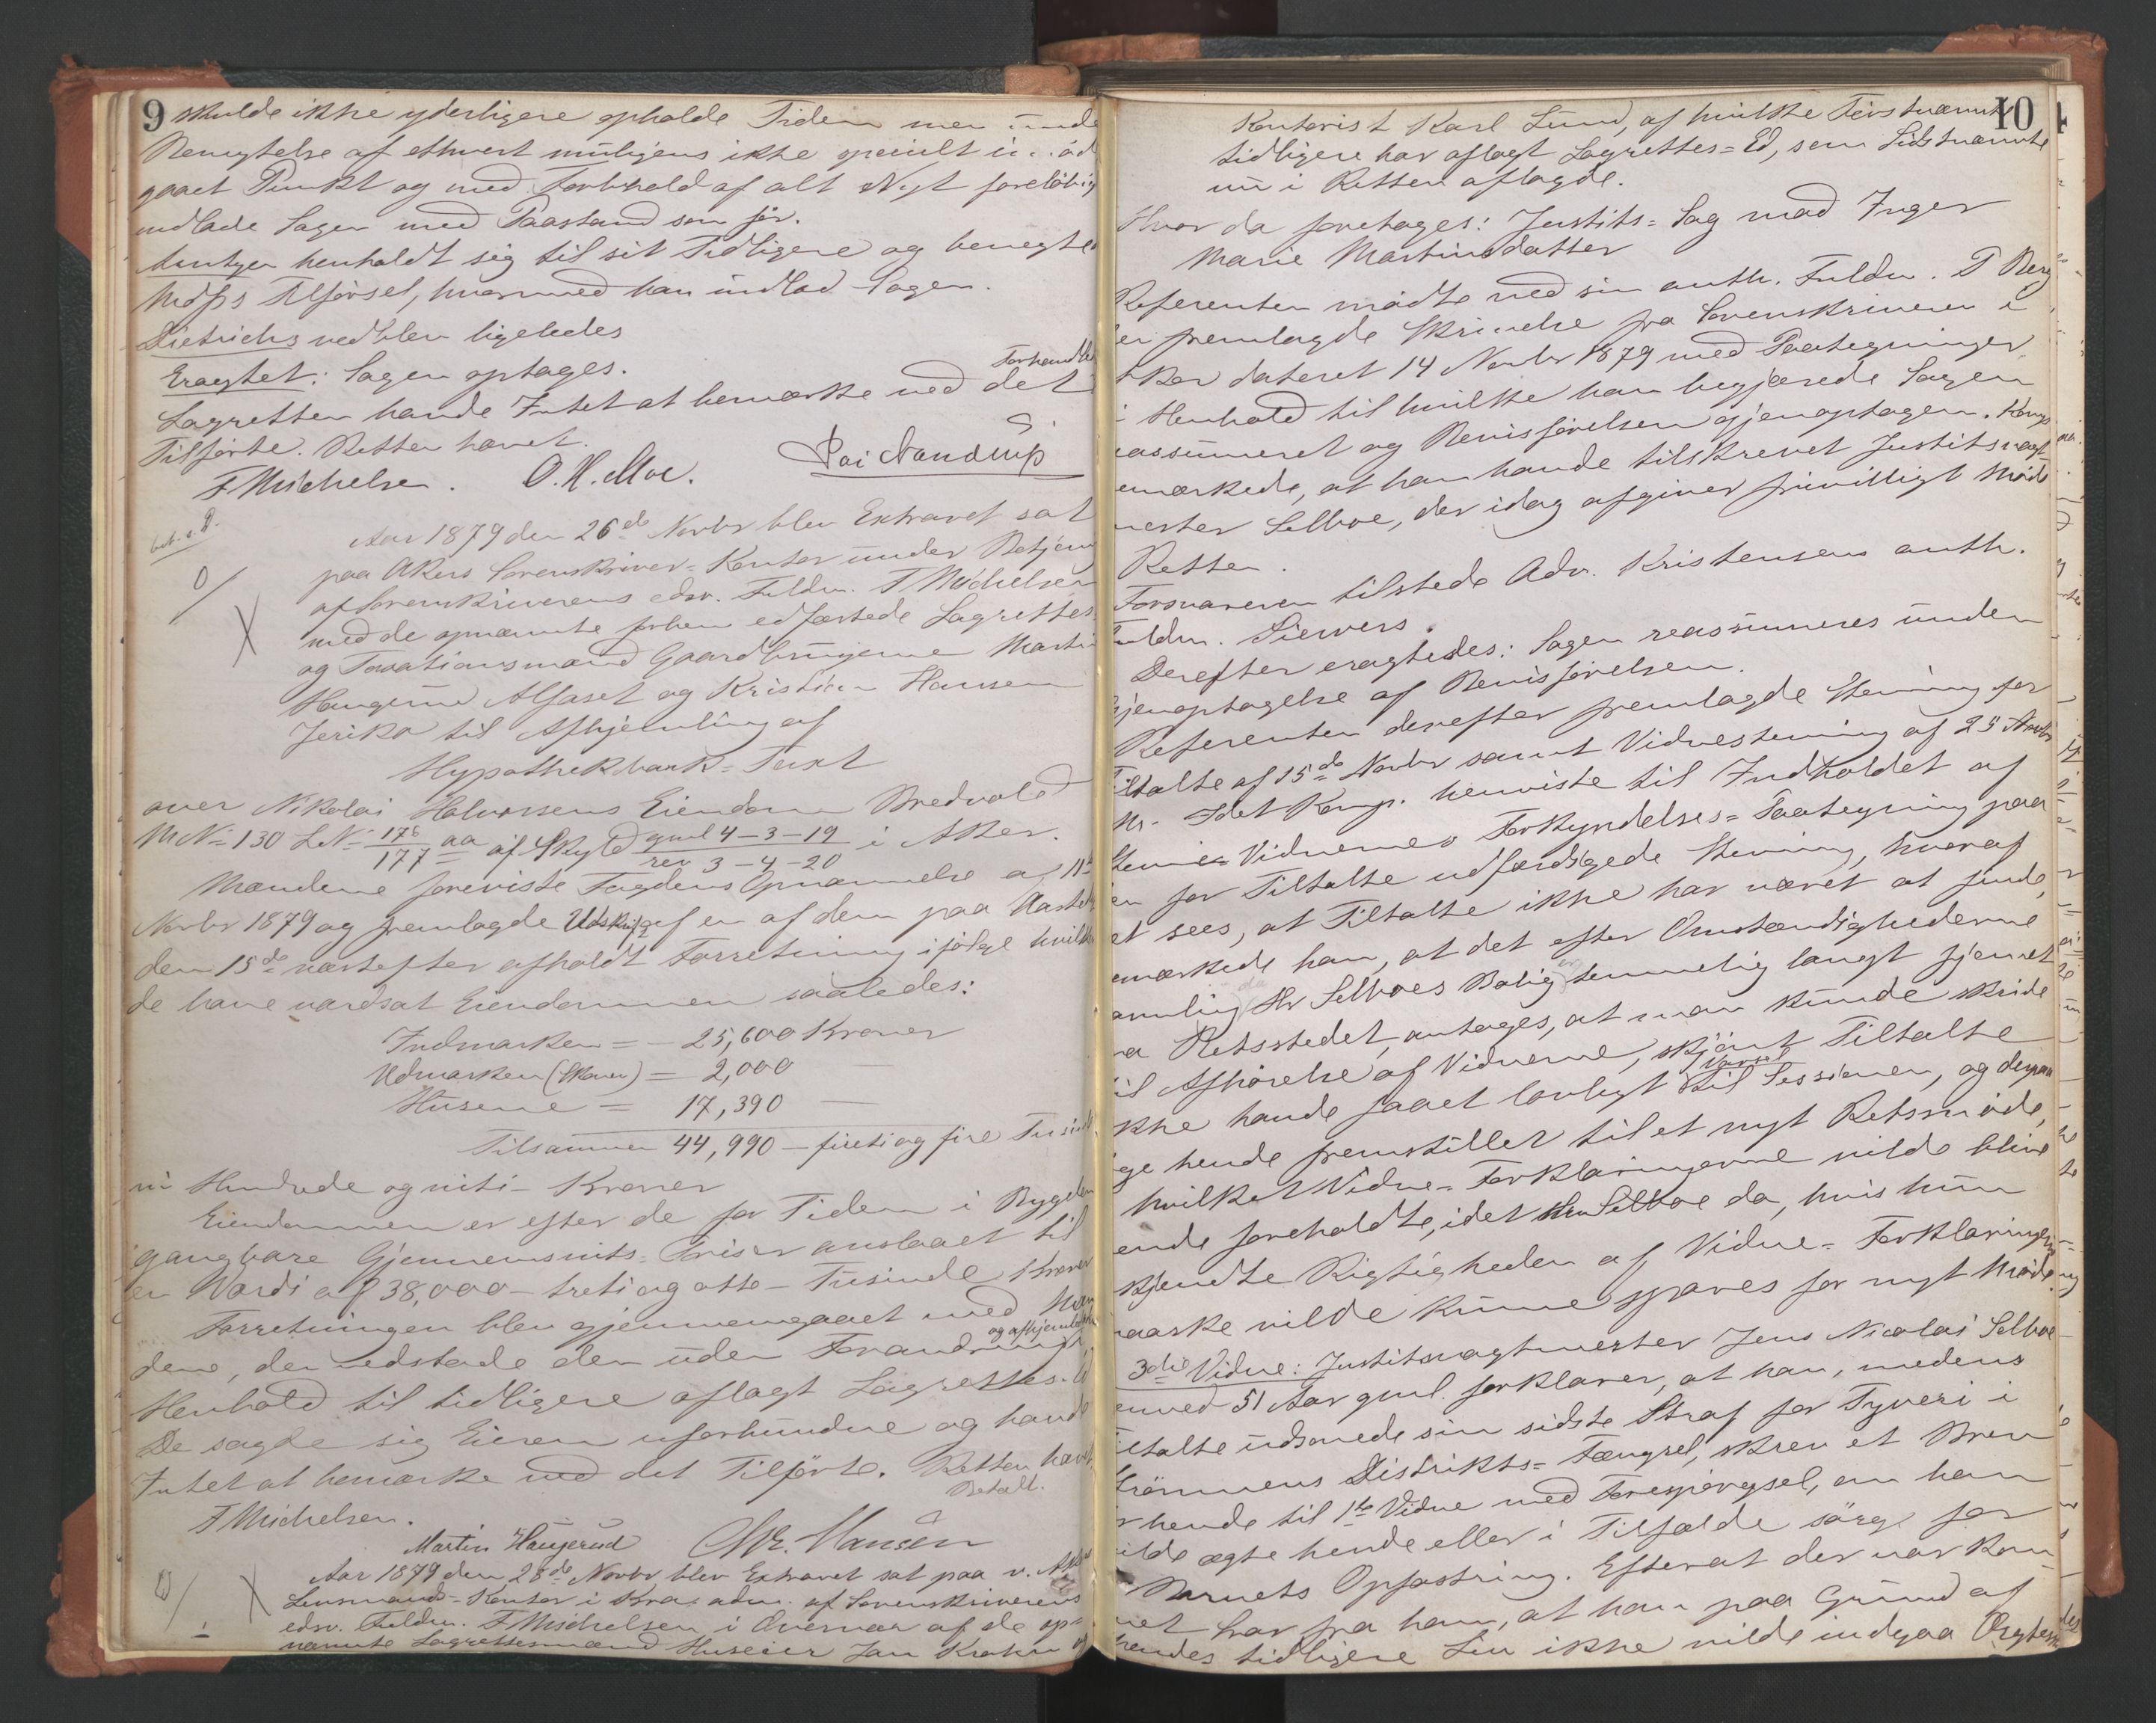 9
skulde ikke yderligere opholde Tiden men unde
Benegtelse af ethvert muligens ikke specielt imöde
gaaet Punkt og med Forbehold af alt Nyt foreløbig
indlade Sagen med Paastand som før.
henholdt sig til sit Tidligere og benegtede
Tilførsel, hvormed han indlod Sagen.
Dietrichs vedblev ligeledes
Eragtet: Sagen optages.
Lagretten havde Intet at bemærke ved det Forhandl
Tilførte. Retten hævet.
F Michelsen. O. H. Moe.
bet. s. 8.
Aar 1879 den 26de Novbr blev Extraret sat
paa Akers Sorenskriver-Kontor under Betjening
af Sorenskriverens edsv. Fuldm. F Michelsen
med de opnævnte forhen edfæstede Lagrettes
og Taxationsmænd Gaardbrugerne Martin
Haugerud Alfaset og Kristian Hansen
Jeriko til Afhjemling af
Hypothekbank-Taxt
over Nikolai Halvorsens Eiendom Bredvold
M No 130 L No 176/177 aa af Skyld gml 4-3-19 / rev 3-4-20 i Aker.
Mændene foreviste Fogdens Opnævnelse af 11te
Novbr 1879 og fremlagde Udskrift af en af dem paa Aastedet
den 15de næstefter afholdt Forretning ifølge hvilken
de have værdsat Eiendommen saaledes:
Indmarken = - 25,600 Kroner
Udmarken (Skov) = 2,000 —
Husene = 17,390 —
Tilsammen 44,990 - firetiogfire Tusind
ni Hundrede og niti - Kroner
Eiendommen er efter de for Tiden i Bygden
gangbare Gjennemsnits-Priser anslaaet til
en Værdi af 38,000 - tretiogotte - Tusinde Kroner
Forretningen blev gjennemgaaet med Mæn
dene, der vedstode den uden Forandring og afhjemlede
Henhold til tidligere aflagt Lagrettes-
De sagde sig Eieren uforbundne og havde
Intet at bemærke ved det Tilførte. Retten hævet.
Betalt.
F Michelsen.
Martin Haugerud Chr. Hansen
Aar 1879 den 28de Novbr blev Extraret sat paa v. Akers
Lensmands-Kontor i Kra. adm. af Sorenskriverens
edsv. Fuldm. F Michelsen i Overvær af de op-
nævnte Lagrettesmænd Huseier Jan Krohn og
10
Kontorist Karl Lund, af hvilke Førstnævnte
tidligere har aflagt Lagrettes-Ed, som Sidstnævnte
nu i Retten aflagde.
Hvor da foretages: Justits-Sag mod Inger
Marie Martinsdatter
Referenten mødte ved sin auth. Fuldm. P Berg
der fremlagde Skrivelse fra Sorenskriveren i
Aker dateret 14 Novbr 1879 med Paategninger
i Henhold til hvilke han begjærede Sagen
reassumeret og Bevisførelsen gjenoptagen. Komp.
bemærkede, at han havde tilskrevet Justitsvagt-
mester Selboe, der idag afgiver frivilligt Møde
Retten.
Forsvareren tilstede Adv. Kristensens auth.
Fuldm. Siewers.
Derefter eragtedes: Sagen reassumeres under
Gjenoptagelse af Bevisførelsen.
Referenten derefter fremlagde Stevning for
Tiltalte af 15de Novbr samt Vidnestevning af 25
Idet Komp. henviste til Indholdet af
Vidnernes Forkyndelses-Paategning paa
den for Tiltalte udfærdigede Stevning, hvoraf
det sees, at Tiltalte ikke har været at finde,
bemærkede han, at det efter Omstændighederne
navnlig Hr Selboes Bolig temmelig langt fjernet
fra Retsstedet, antages, at man kunde skride
til Afhørelse af Vidnerne, skjønt Tiltalte
ikke havde faaet lovligt Varsel til Sessionen, og derpaa
lige hende fremstillet til et nyt Retsmøde,
hvilket Vidne-Forklaringerne vilde blive
hende foreholdte, idet Hr Selboe da, hvis hun
erkjendte Rigtigheden af Vidne-Forklaringerne
maaske vilde kunne spares for nyt Møde.
3die Vidne: Justitsvagtmester Jens Nicolai Selboe
henved 51 Aar gml. forklarer, at han, medens
Tiltalte udsonede sin sidste Straf for Tyveri i
Strømmens Distrikts-Fængsel, skrev et Brev
for hende til 1ste Vidne med Forespørgsel, om han
vilde ægte hende eller i Tilfælde sørge for
Barnets Opfostring. Efterat der var kom-
met Svar fra ham, at han paa Grund af
hendes tidligere Liv ikke vilde indgaa Ægteskab